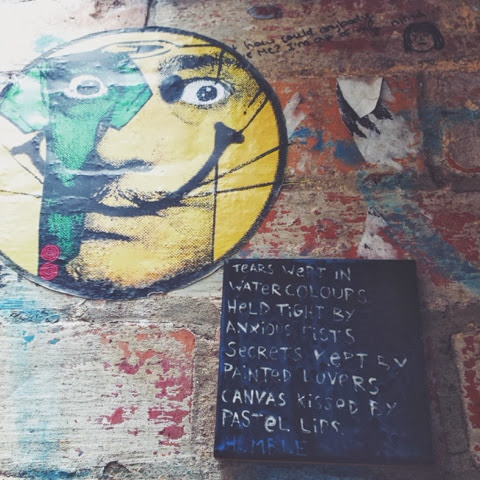 how could anybody
TEARS WEPT IN
WATERCOLOURS
HELD TIGHT BY
ANXIOUS FISTS
SECRETS KEPT BY
PAINTED LOVERS
CANVAS KISSED BY
PASTEL LIPS
HUMBLE